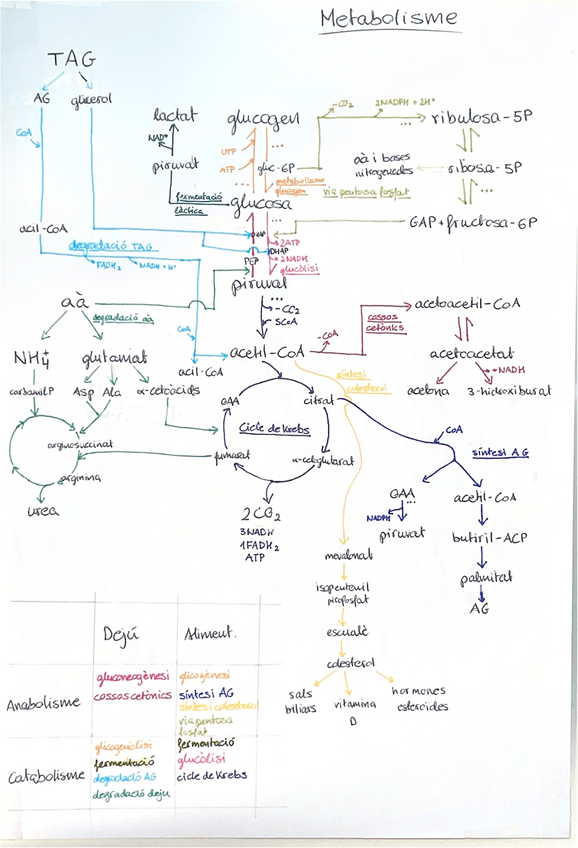 Metabolisme
TAG
AG
glicerol
CoA
acil-CoA
degradació TAG
FADH₂
NADH + H⁺
lactat
NAD⁺
piruvat
fermentació
làctica
glucogen
UTP
ATP
gluc-6P
metabolisme
glucogen
glucosa
-CO₂
2NADPH + 2H⁺
...
ribulosa-5P
aà i bases
nitrogenades
ribosa-5P
via pentosa fosfat
...
GAP + fructosa-6P
DHAP
2ATP
2NADH
PEP
glucòlisi
piruvat
...
-CO₂
SCoA
aà
degradació aà
NH₄⁺
glutamat
carbamil P
Asp
Ala
α-cetoàcids
arginosuccinat
arginina
urea
CoA
acil-CoA
acetil-CoA
-CoA
cossos
cetònics
acetoacetil-CoA
acetoacetat
+NADH
acetona
3-hidroxibutirat
síntesi
colesterol
OAA
citrat
Cicle de Krebs
fumarat
α-cetoglutarat
2CO₂
3NADH
1FADH₂
ATP
CoA
síntesi AG
OAA
...
NADPH
piruvat
acetil-CoA
butiril-ACP
palmitat
AG
mevalonat
isopentenil
pirofosfat
escualè
colesterol
sals
biliars
vitamina
D
hormones
esteroides
Dejú
Aliment.
Anabolisme
gluconeogènesi
cossos cetònics
glicogènesi
síntesi AG
síntesi colesterol
via pentosa
fosfat
Catabolisme
glicogenòlisi
fermentació
degradació AG
degradació dejú
fermentació
glucòlisi
cicle de Krebs